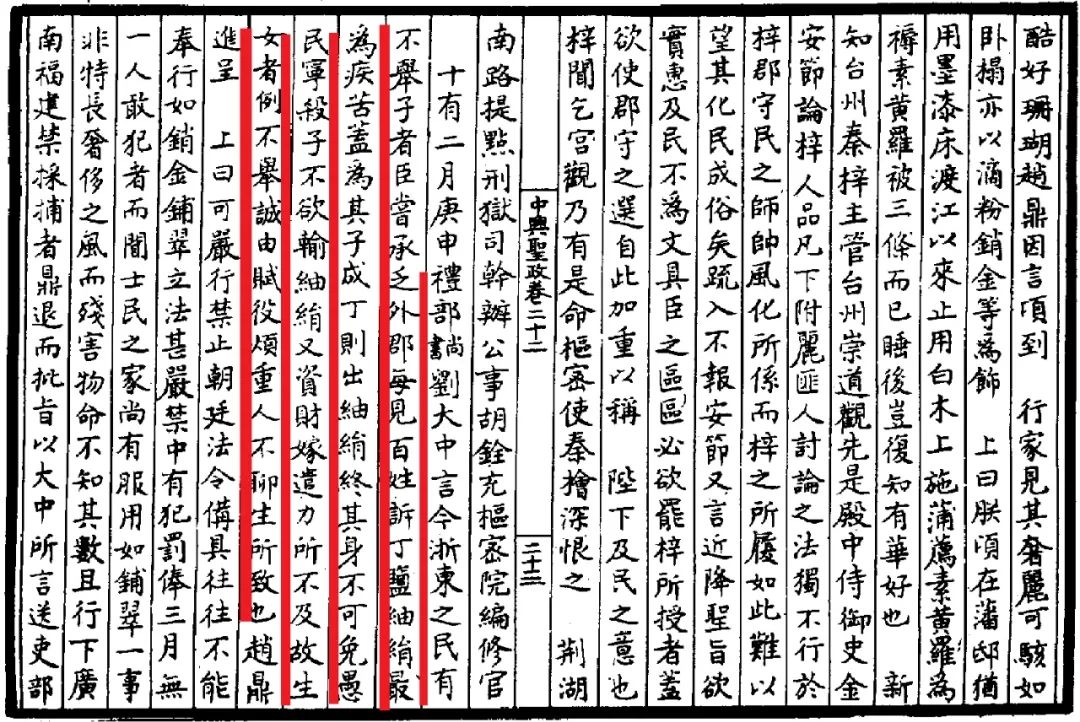 酷好珊瑚趙鼎因言頃到　行家見其奢麗可駭如
卧榻亦以滴粉銷金等為飾　上曰朕頃在藩邸猶
用墨漆床渡江以來止用白木上施蒲薦素黃羅為
褥素黃羅被三條而已睡後豈復知有華好也　新
知台州秦梓主管台州崇道觀先是殿中侍御史金
安節論梓人品凡下附麗匪人討論之法獨不行於
梓郡守民之師帥風化所係而梓之所履如此難以
望其化民成俗矣疏入不報安節又言近降聖旨欲
實惠及民不為文具臣之區區必欲罷梓所授者蓋
欲使郡守之選自此加重以稱　陛下及民之意也
梓聞乞宮觀乃有是命樞密使秦檜深恨之　荆湖
中興聖政卷二十二
二十三
南路提點刑獄司幹辦公事胡銓充樞密院編修官
十有二月庚申禮部尚書劉大中言今浙東之民有
不舉子者臣嘗承乏外郡每見百姓訴丁鹽紬絹最
為疾苦盖為其子成丁則出紬絹終其身不可免愚
民寧殺子不欲輸紬絹又資財嫁遣力所不及故生
女者例不舉誠由賦役煩重人不聊生所致也趙鼎
進呈　上曰可嚴行禁止朝廷法令備具往往不能
奉行如銷金鋪翠立法甚嚴禁中有犯罰俸三月無
一人敢犯者而聞士民之家尚有服用如鋪翠一事
非特長奢侈之風而殘害物命不知其數且行下廣
南福建禁採捕者鼎退而批旨以大中所言送吏部